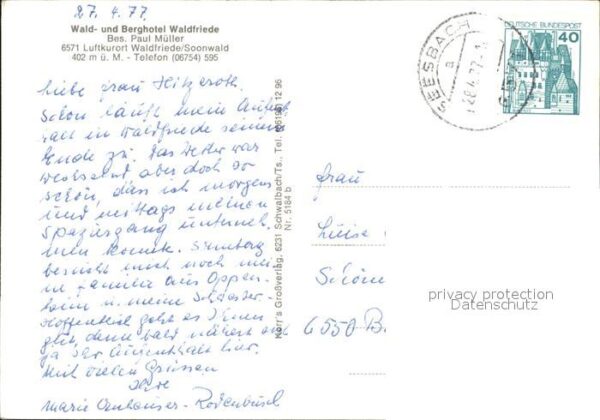 27.4.77.
Wald- und Berghotel Waldfriede
Bes. Paul Müller
6571 Luftkurort Waldfriede/Soonwald
402 m ü. M. - Telefon (06754) 595
Liebe Frau Hitzeroth.
Schon läuft mein Aufent
halt in Waldfriede seinem
Ende zu. Das Wetter war
wechselnd aber doch so
schön, dass ich morgens
und mittags meinen
Spaziergang unterneh-
men konnte. Sonntag
besucht mich noch mei
ne Familie aus Oppen-
heim u. meine Schwester.
Hoffentlich geht es Ihnen
gut, denn bald nähert sich
ja Ihr Aufenthalt hier.
Mit vielen Grüssen
Ihre
Marie
Korr's Großverlag, 6231 Schwalbach/Ts., Tel. (06196) 12 96
Nr. 5184 b
SEESBACH
28.4.77
DEUTSCHE BUNDESPOST
40
Frau
Luise
Schöne
6550 B
privacy protection
Datenschutz